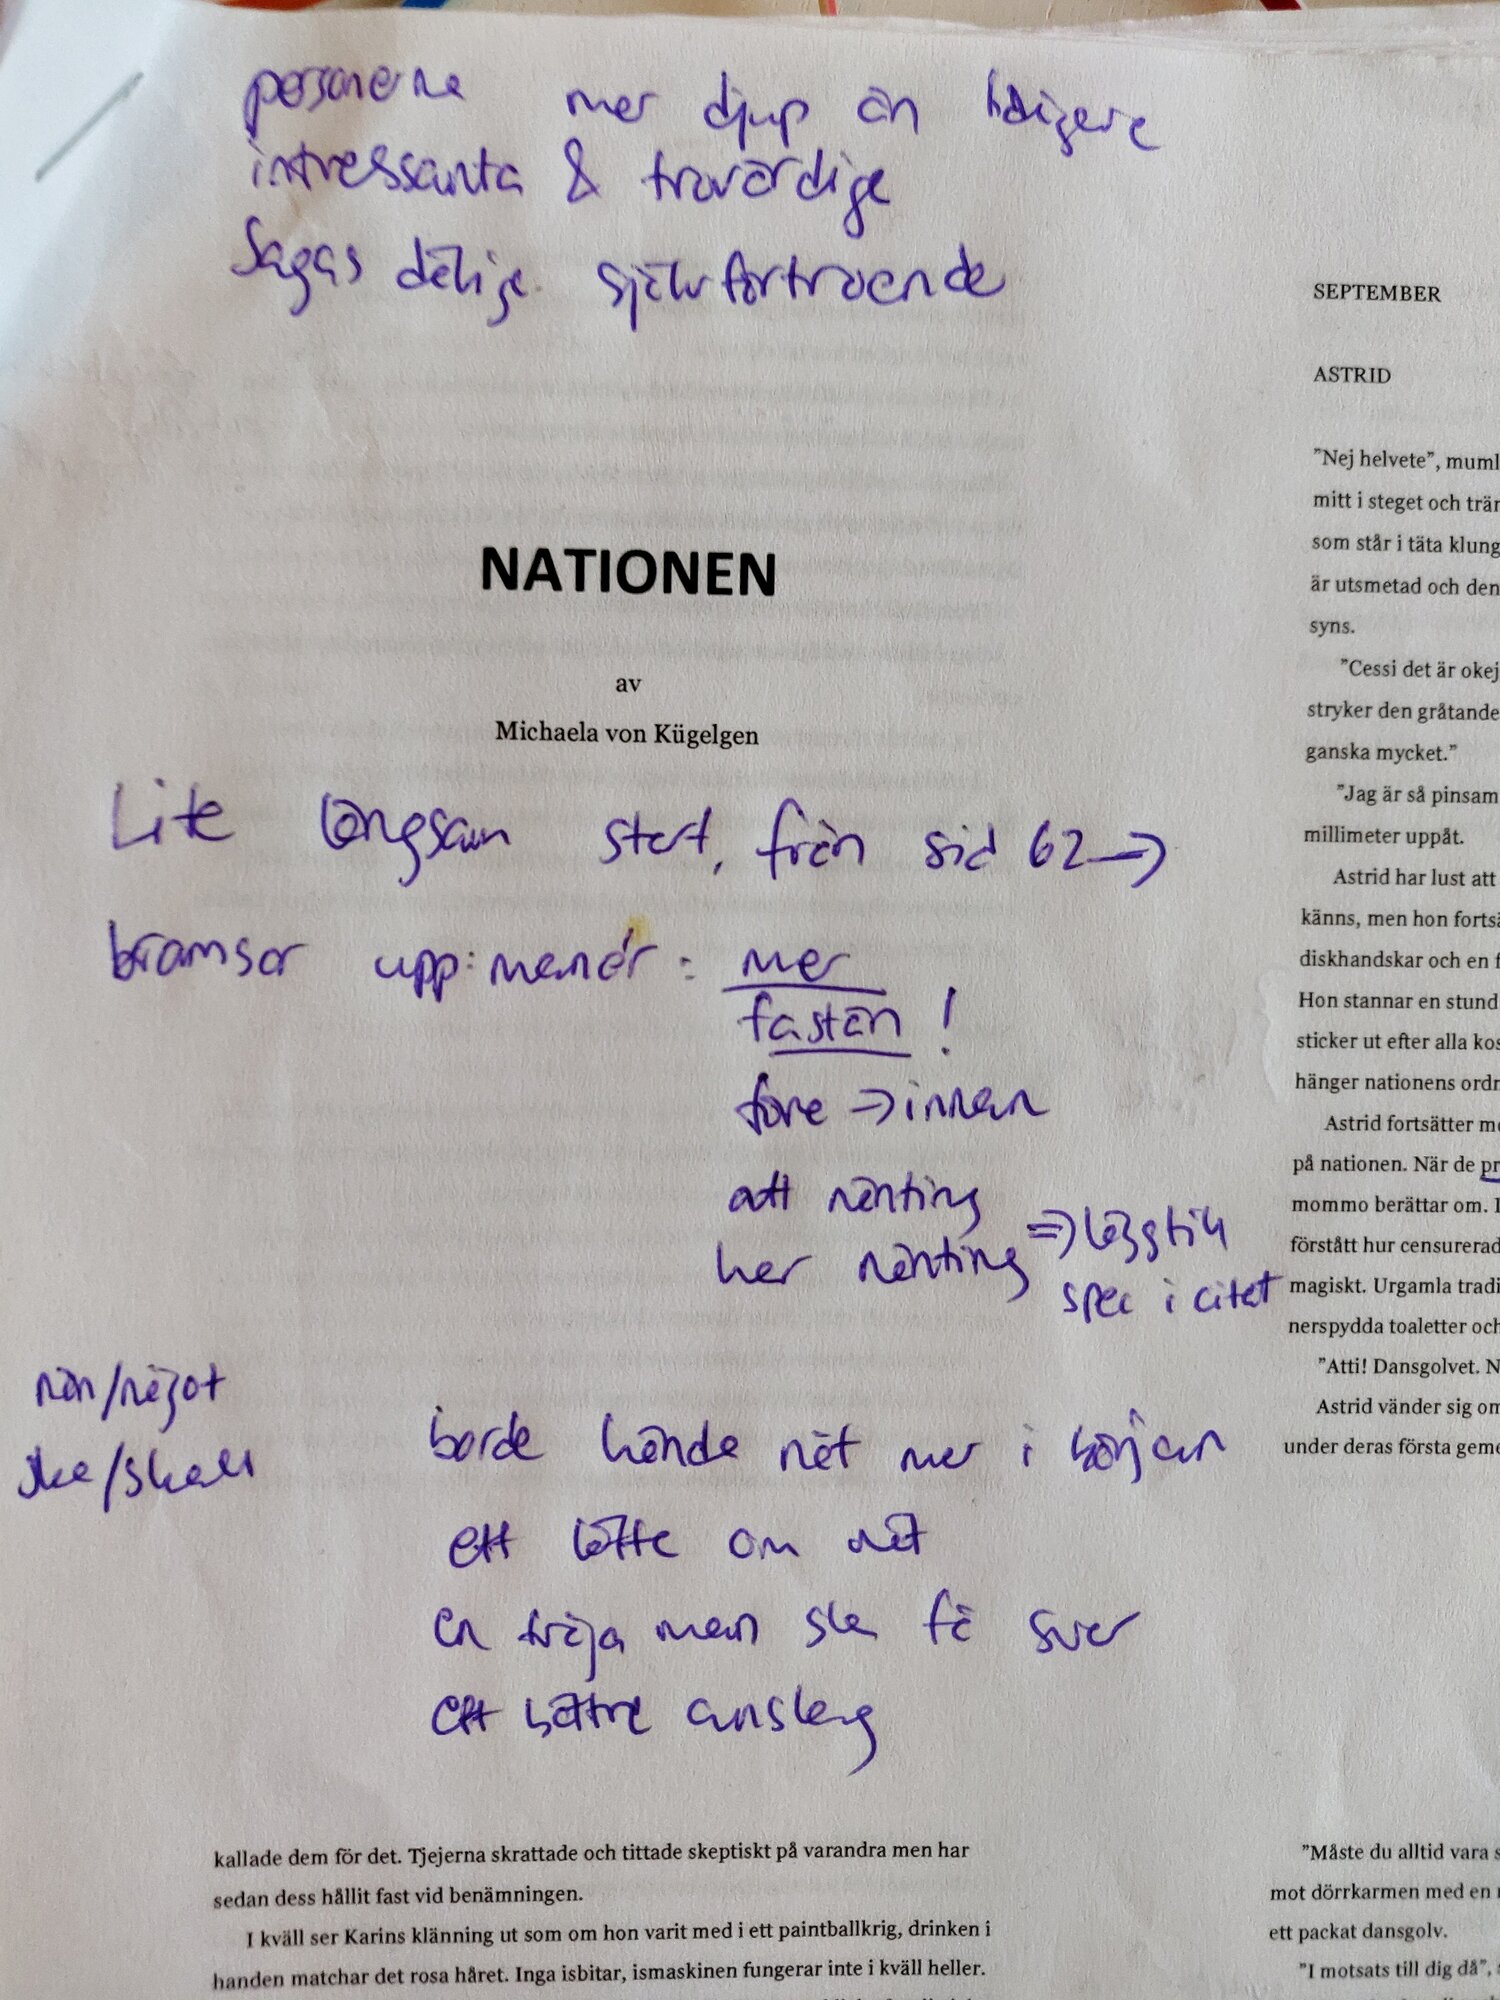 personerna mer djup än tidigare
intressanta & trovärdiga
Sagas dåliga självförtroende
NATIONEN
av
Michaela von Kügelgen
Lite långsam start, från sid 62 →
bromsar upp: manér: mer
fastän!
före → innan
att nånting
har nånting ⇒ lägg till
spec i citat
nån/något
ska/skall
borde hända nåt mer i början
ett löfte om nåt
en fråga man ska få svar
ett bättre anslag
kallade dem för det. Tjejerna skrattade och tittade skeptiskt på varandra men har
sedan dess hållit fast vid benämningen.
I kväll ser Karins klänning ut som om hon varit med i ett paintballkrig, drinken i
handen matchar det rosa håret. Inga isbitar, ismaskinen fungerar inte i kväll heller.
SEPTEMBER
ASTRID
”Nej helvete”, muml
mitt i steget och trär
som står i täta klung
är utsmetad och den
syns.
”Cessi det är okej
stryker den gråtande
ganska mycket.”
”Jag är så pinsam
millimeter uppåt.
Astrid har lust att
känns, men hon fortsä
diskhandskar och en f
Hon stannar en stund
sticker ut efter alla kos
hänger nationens ordn
Astrid fortsätter me
på nationen. När de pr
mommo berättar om. I
förstått hur censurerad
magiskt. Urgamla tradi
nerspydda toaletter och
”Atti! Dansgolvet. N
Astrid vänder sig om
under deras första geme
”Måste du alltid vara s
mot dörrkarmen med en
ett packat dansgolv.
”I motsats till dig då”,